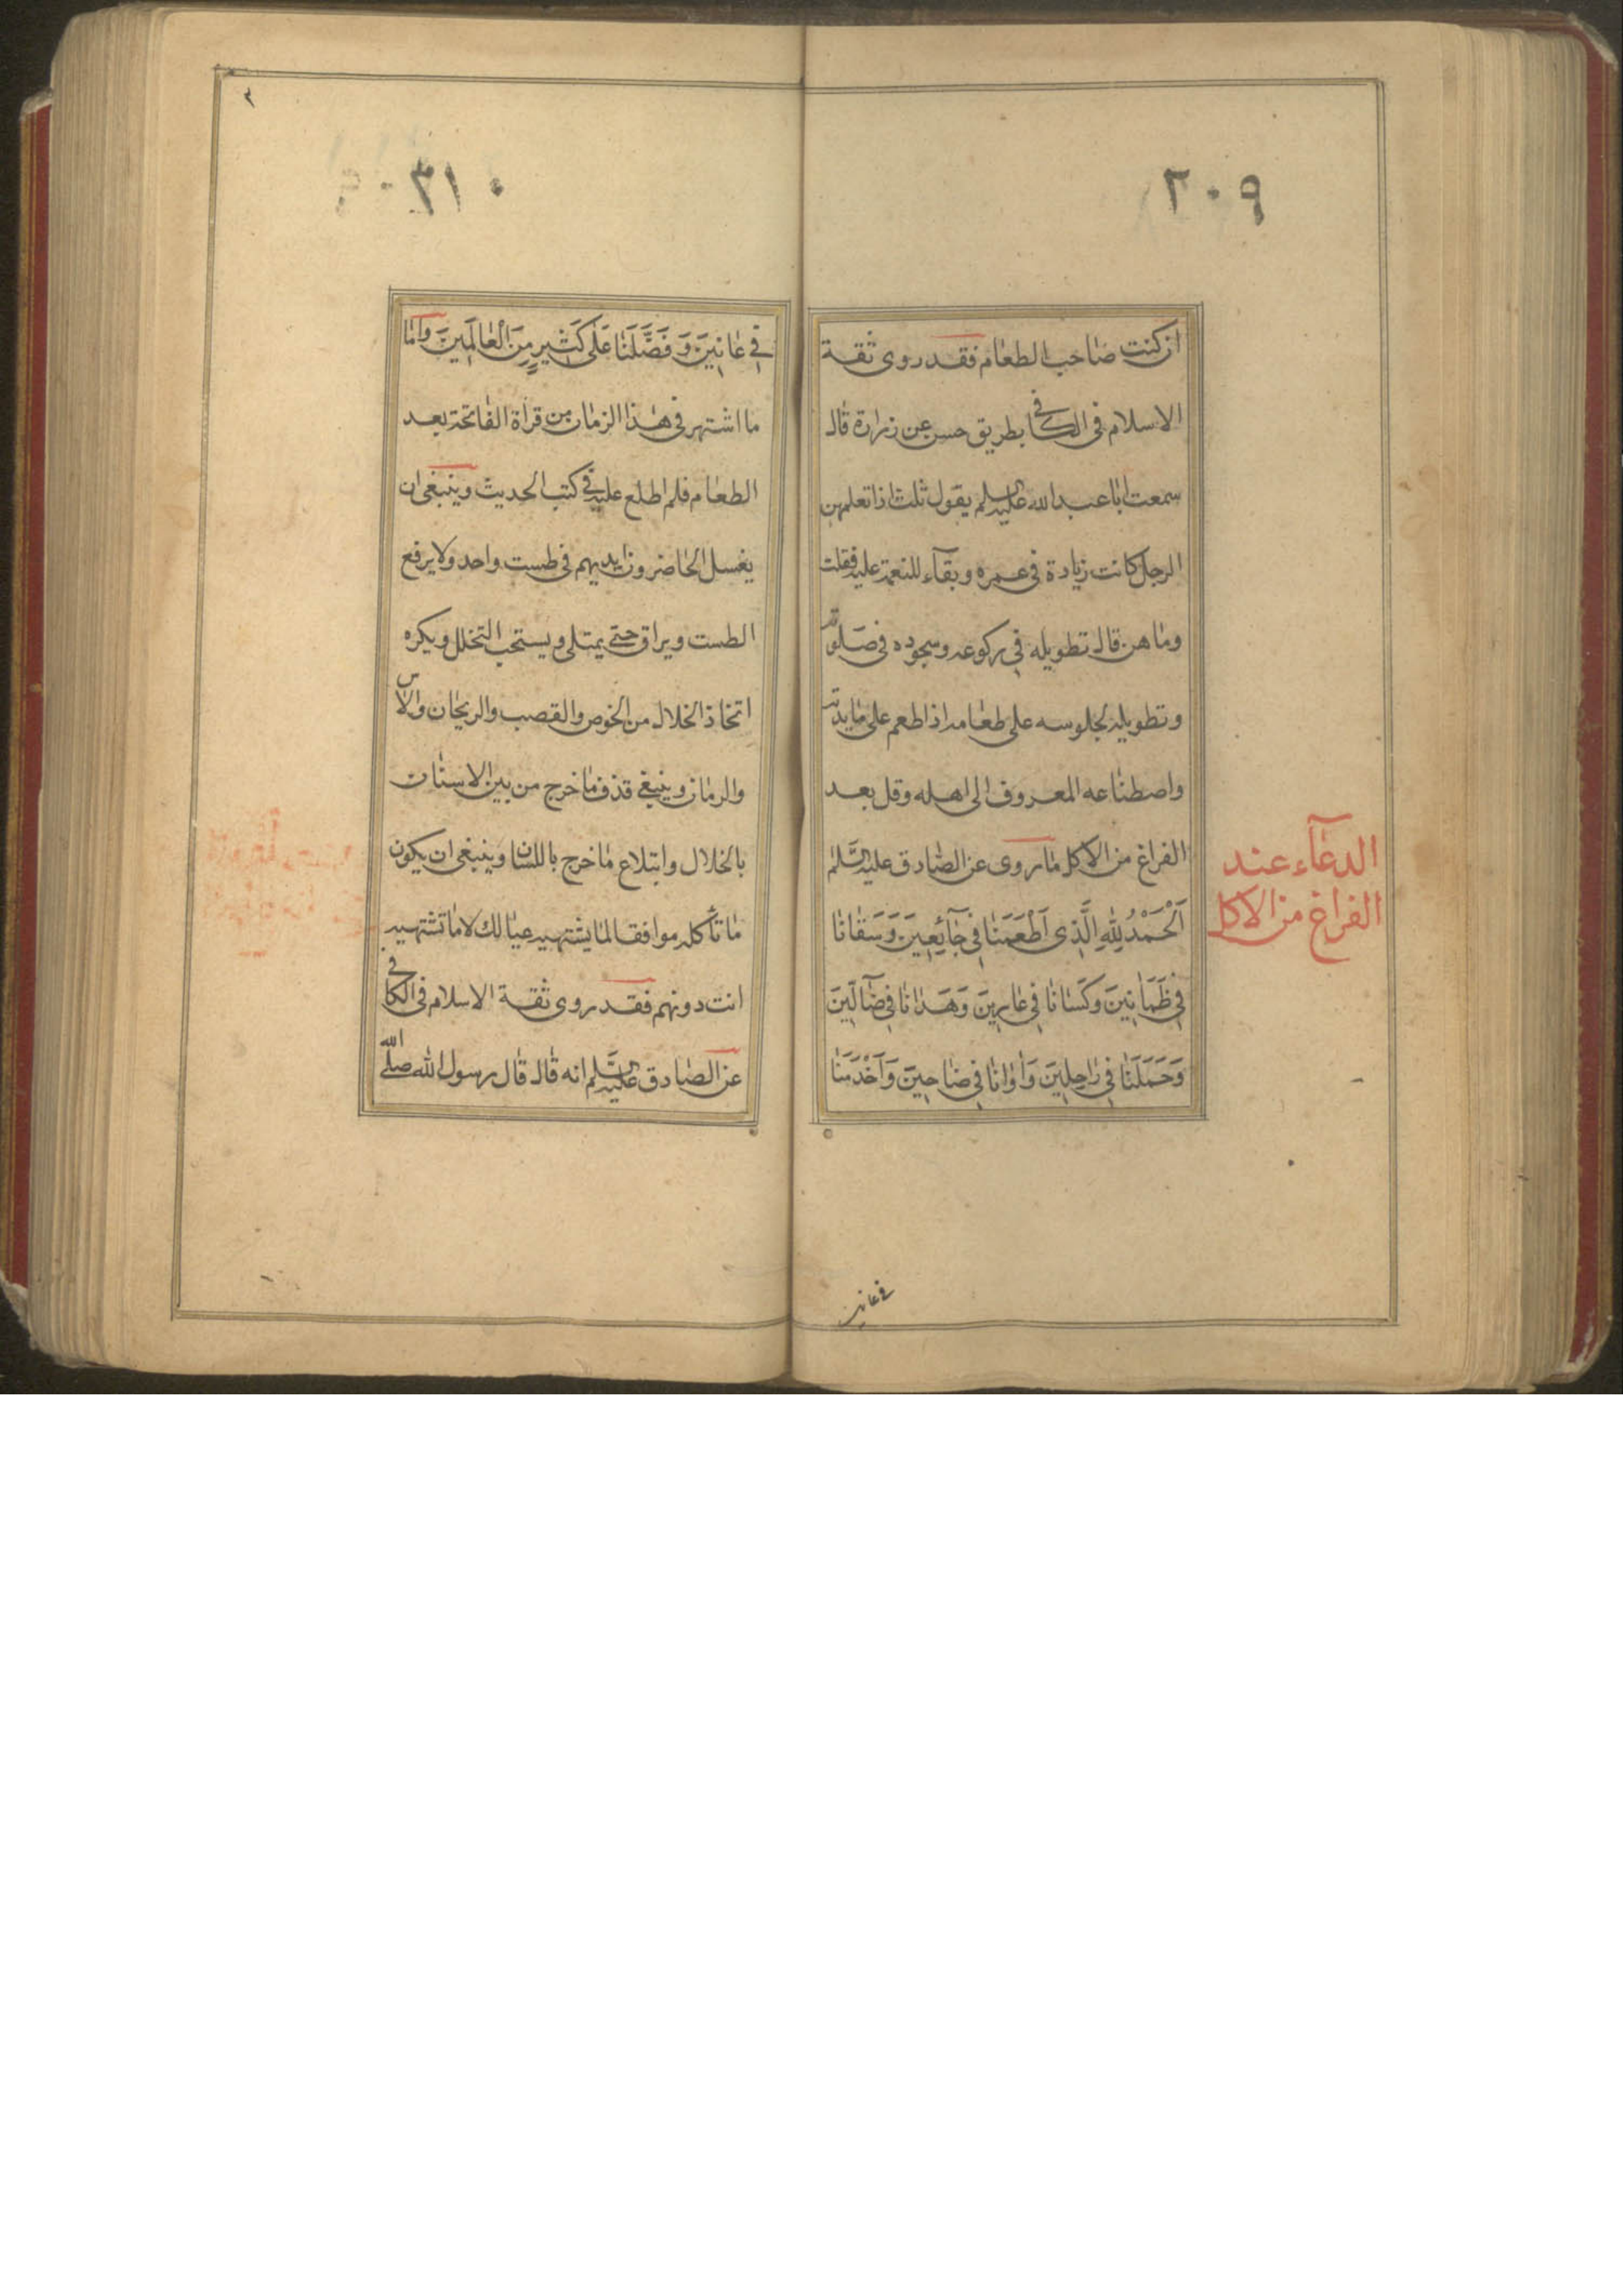 ٣٠٩
ان كنت صاحب الطعام فقد روى ثقة
الاسلام فى الكافى بطريق حسن عن زرارة قال
سمعت ابا عبد الله عليه السلم يقول ثلث اذا تعلمهن
الرجل كانت زيادة فى عمره وبقآء للنعمة عليه فقلت
وما هن قال تطويله فى ركوعه وسجوده فى صلوته
وتطويله لجلوسه على طعامه اذا طعم على مايدته
واصطناعه المعروف الى اهله وقل بعد
الفراغ من الاكل ما روى عن الصادق عليه السَّلم
اَلْحَمْدُ لِلّٰهِ الَّذِى اَطْعَمَنَا فِى جَآئِعِينَ وَسَقَانَا
فِى ظَمَانِينَ وَكَسَانَا فِى عَارِينَ وَهَدَانَا فِى ضَآلِّينَ
وَحَمَلَنَا فِى رَاجِلِينَ وَاٰوَانَا فِى ضَاحِينَ وَاَخْدَمَنَا
الدعآء عند
الفراغ من الاكل
فى عانين
٣١٠
فِى عَانِينَ وَفَضَّلَنَا عَلَى كَثِيرٍ مِنَ الْعَالَمِينَ واما
ما اشتهر فى هذا الزمان من قرأة الفاتحة بعد
الطعام فلم اطلع عليه فى كتب الحديث وينبغى ان
يغسل الحاضرون ايديهم فى طست واحد ولا يرفع
الطست ويراق حتى يمتلى ويستحب التخلل ويكره
اتخاذ الخلال من الخوص والقصب والريحان والاس
والرمان وينبغى قذف ما خرج من بين الاسنان
بالخلال وابتلاع ما خرج باللسان وينبغى ان يكون
ما تأكله موافقا لما يشتهيه عيالك لا ما تشتهيه
انت دونهم فقد روى ثقة الاسلام فى الكافى
عن الصادق عليه السَّلم انه قال قال رسول الله صلى الله